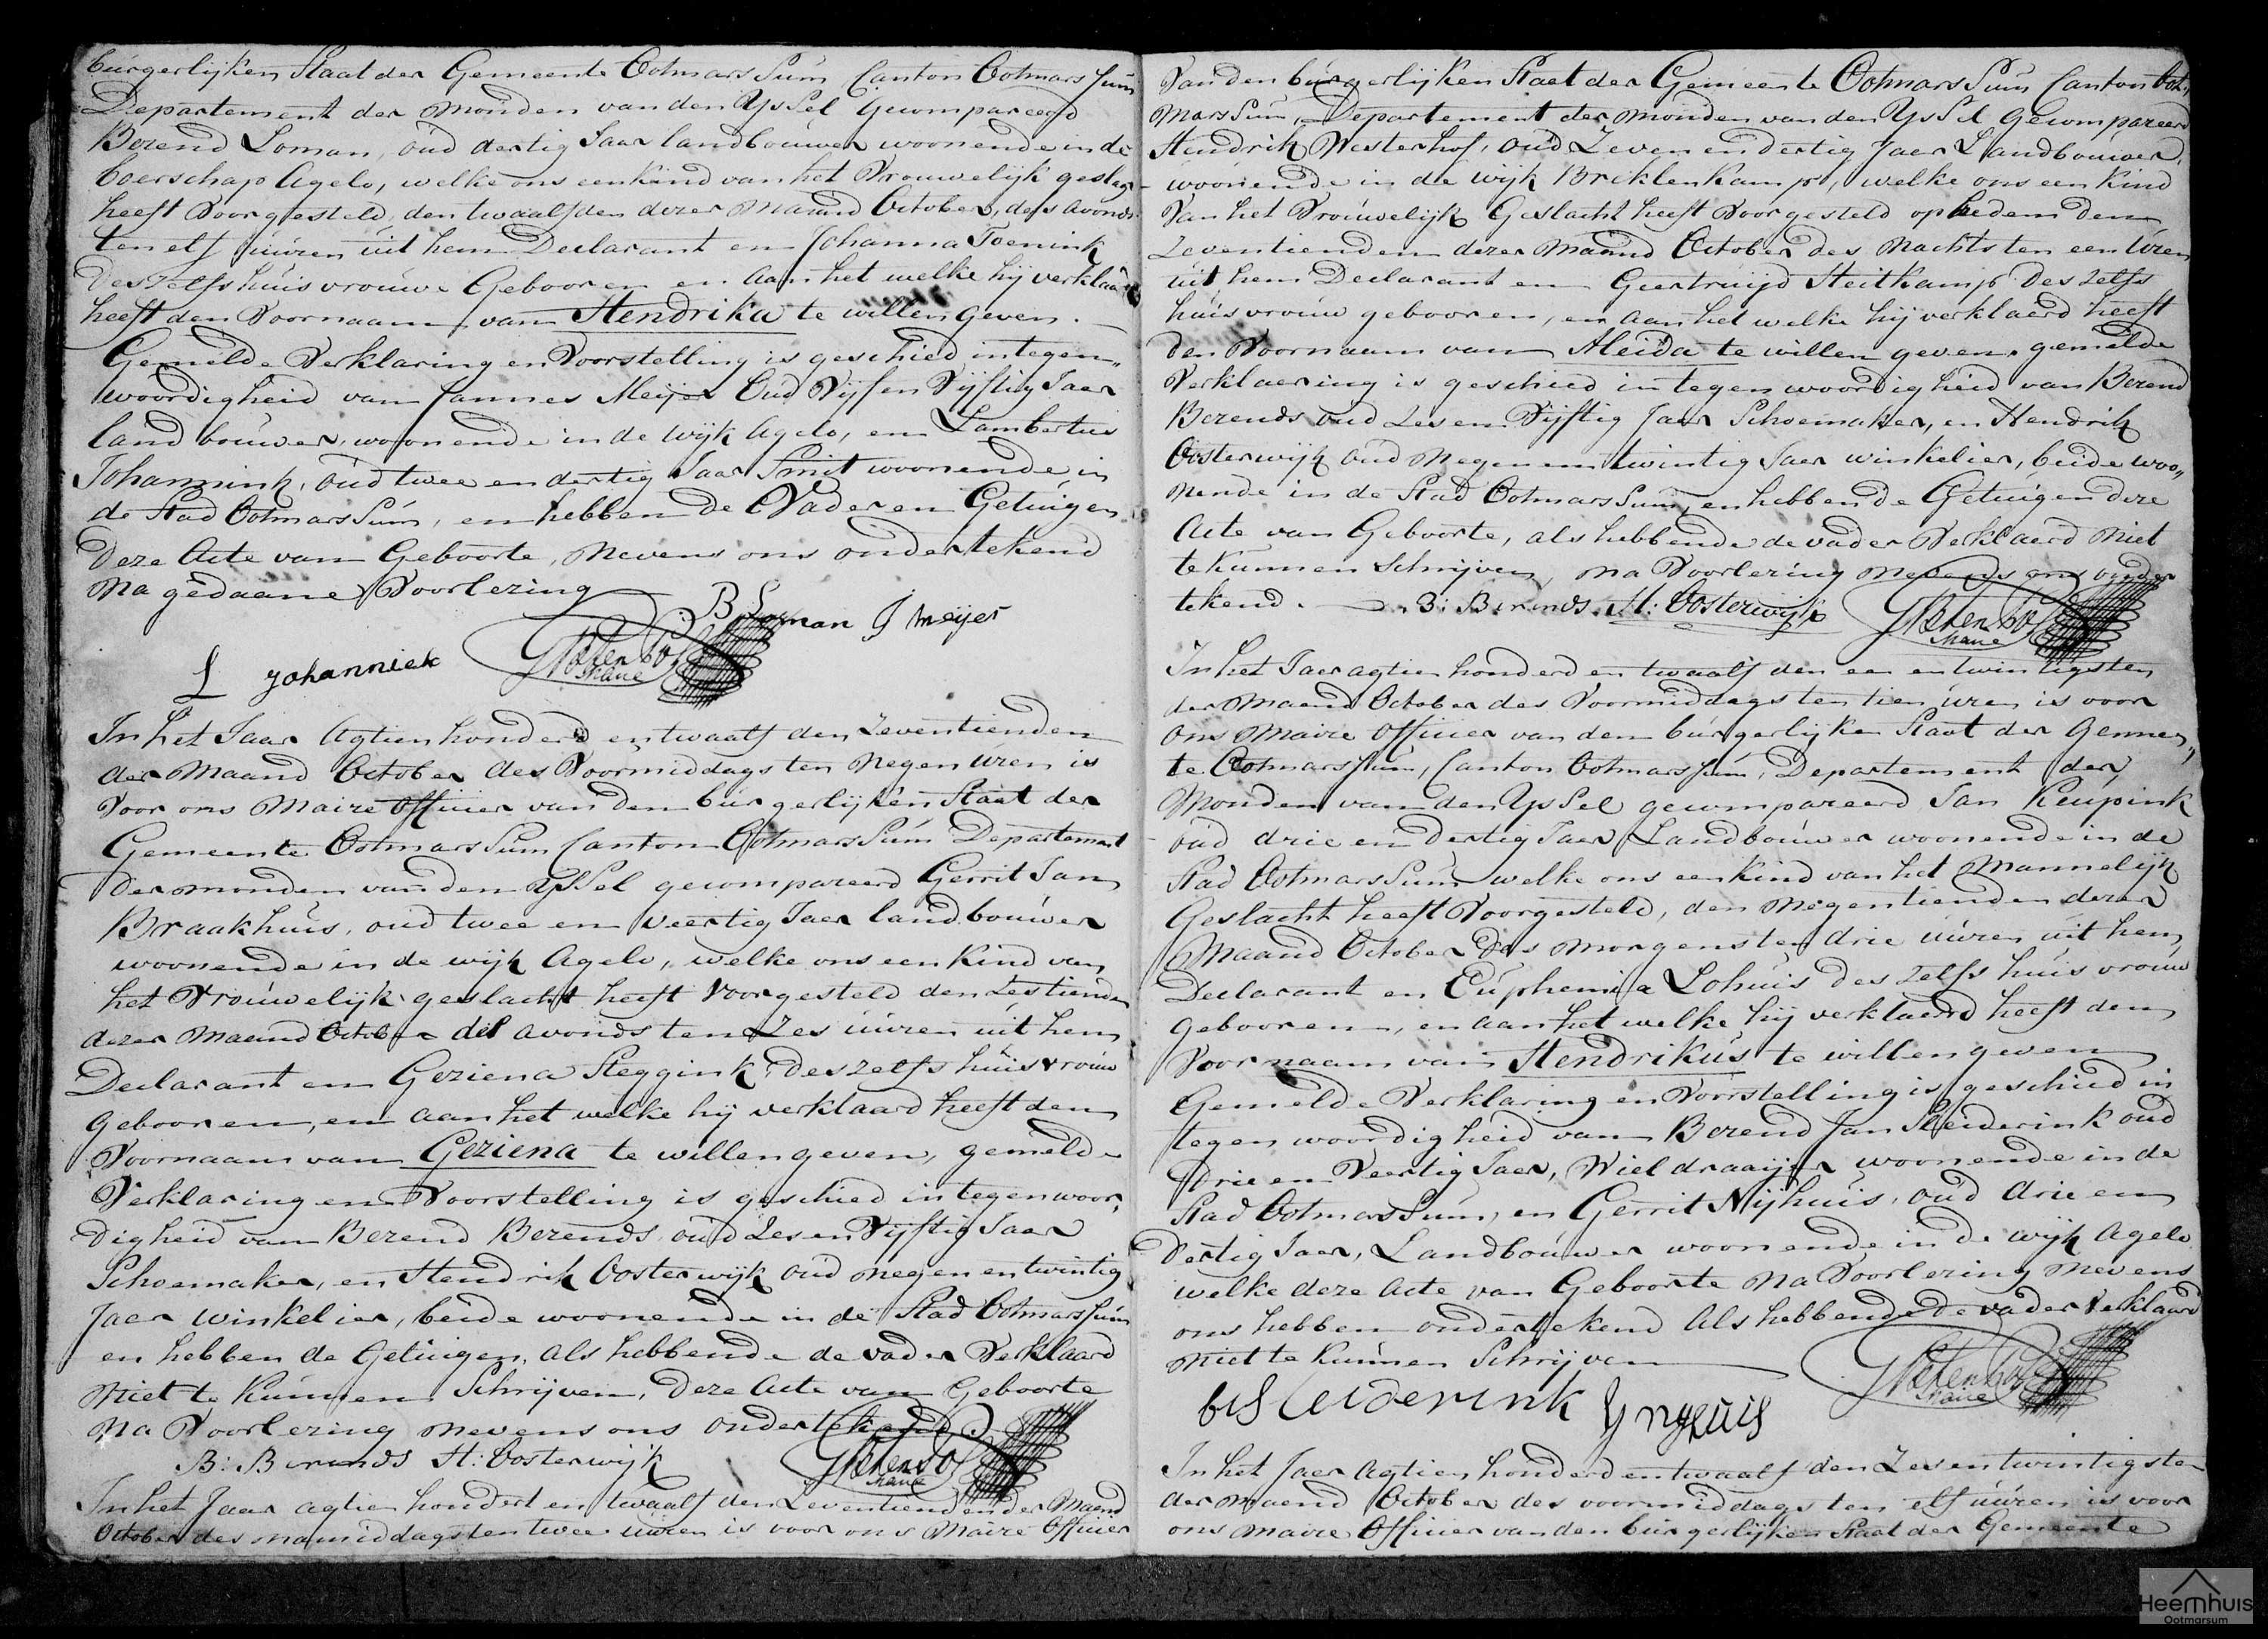 burgerlijken Staat der Gemeente Ootmarssum Canton Ootmarssum
Departement der monden van den Yssel Gecompareerd
Berend Loman, oud dertig Jaar landbouwer woonende in de
boerschap Agelo, welke ons een kind van het Vrouwelijk geslagt
heeft Voorgesteld, den twaalfden dezer maand October, des avonds
ten elf uuren uit hem Declarant en Johanna Toenink
deszelfs huisvrouwe Gebooren en aan het welke hij verklaard
heeft den Voornaam van Hendrika te willen geven.
Gemelde Verklaring en Voorstelling is geschied in tegen„
woordigheid van Jannes Meijer Oud Vijf en Vijftig Jaar
landbouwer, woonende in de wijk Agelo, en Lambertus
Johannink, oud twee en dertig Jaar Smit woonende in
de Stad Ootmarssum, en hebben de Vader en Getuigen
Deze Acte van Geboorte, nevens ons ondertekend
na gedaane Voorlezing
B Loman J meijer
L Johannick
Maire
In het Jaar Agtien honderd en twaalf den Zeventienden
der Maand October des Voormiddags ten Negen Uren is
Voor ons Maire Officier van den burgerlijken Staat der
Gemeente Ootmarssum Canton Ootmarssum Departement
der monden van den Yssel gecompareerd Gerrit Jan
Braakhuis, oud twee en veertig Jaer landbouwer
woonende in de wijk Agelo, welke ons een Kind van
het Vrouwelijk geslacht heeft Voorgesteld den Zestienden
dezer Maand October des avonds ten Zes uuren uit hem
Declarant en Geziena Steggink, deszelfs huisvrouw
gebooren, en aan het welke hij verklaard heeft den
Voornaam van Geziena te willen geven, gemelde
Verklaring en Voorstelling is geschied in tegenwoor„
digheid van Berend Berends, oud Zes en Vijftig Jaar
Schoemaker, en Hendrik Oosterwijk oud negen en twintig
Jaer winkelier, beide woonende in de Stad Ootmarssum
en hebben de Getuigen, als hebbende de vader Verklaard
niet te kunnen Schrijven, Deze Acte van Geboorte
na Voorlezing nevens ons ondertekend.
B: Berends H: Oosterwijk
Maire
In het Jaar agtien hondert en twaalf den Zeventienden der Maend
October des namiddags ten twee uuren is voor ons Maire Officier
Van den burgerlijken Staat der Gemeente Ootmarssum Canton Oot„
marssum, Departement der monden van den Yssel Gecompareerd
Hendrik Westerhof, oud Zeven en dertig Jaer Landbouwer,
woonende in de wijk Breklenkamp, welke ons een Kind
Van het Vrouwelijk Geslacht heeft Voorgesteld op heden den
Zeventienden dezer maand October des Nachts ten een Uren
uit hem Declarant en Geertruijd Heitkamp deszelfs
huisvrouw gebooren, en aan het welke hij verklaerd heeft
den Voornaam van Aleida te willen geven. gemelde
Verklaering is geschied in tegenwoordigheid van Berend
Berends oud Zes en Vijftig Jaar Schoemaker, en Hendrik
Oosterwijk oud Negen en twintig Jaer winkelier, beide woo„
nende in de Stad Ootmarssum, en hebben de Getuigen deze
Acte van Geboorte, als hebbende de vader Verklaerd niet
te kunnen schrijven, na Voorlezing nevens ons onder
tekend. B: Berends H: Oosterwijk
Maire
In het Jaer agtien honderd en twaalf den een en twintigsten
der Maend October des Voormiddags ten tien uren is voor
Ons Maire Officier van den burgerlijken Staat der Gemeen„
te Ootmarssum, Canton Ootmarssum, Departement der
Monden van den Yssel gecompareerd Jan Keupink
oud drie en dertig Jaer Landbouwer woonende in de
Stad Ootmarssum welke ons een Kind van het Mannelijk
Geslacht heeft Voorgesteld, den Negentienden dezer
Maand October des morgens ten drie uuren uit hem
Declarant en Euphemia Lohuis deszelfs huisvrouw
gebooren, en aan het welke hij verklaerd heeft den
Voornaam van Hendrikus te willen geven
Gemelde Verklaring en Voorstelling is geschied in
tegenwoordigheid van Berend Jan Sleiderink oud
drie en Veertig Jaer, Wieldraaijer woonende in de
Stad Ootmarssum, en Gerrit Nijhuis, oud drie en
dertig Jaer, Landbouwer woonende in de wijk Agelo
welke deze Acte van Geboorte Na Voorlezing nevens
ons hebben ondertekend Als hebbende de vader Verklaard
niet te kunnen Schrijven
Maire
In het Jaer Agtien honderd en twaalf den Zes en twintigsten
der maend October des voormiddags ten elf uuren is voor
ons maire Officier van den burgerlijken Staat der Gemeente
Heemhuis
Ootmarsum